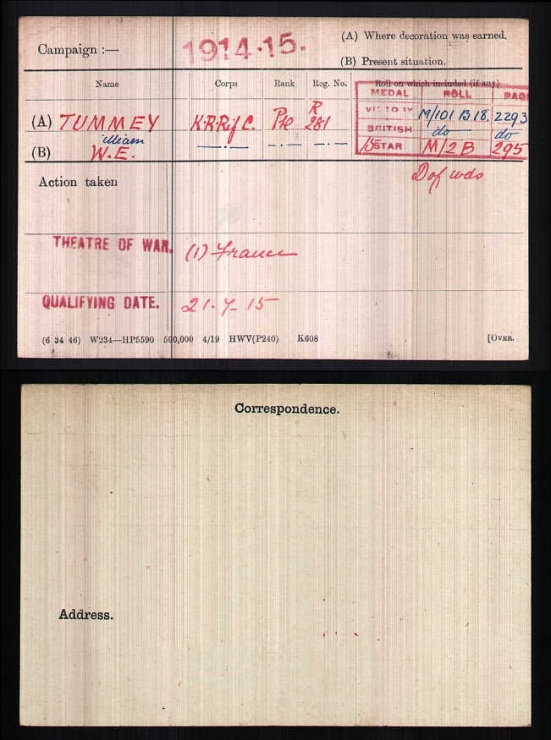 Campaign :— 1914-15. (A) Where decoration was earned.
(B) Present situation.
Name Corps Rank Reg. No. Roll on which included (if any)
MEDAL ROLL PAGE
(A) TUMMEY K.R.Rif C. Pte R 281 VICTORY M/101 B 18. 2293
BRITISH do do
(B) W.E. illiam —·— —·— —·— 15 STAR M/2 B 295
Action taken D of wds
THEATRE OF WAR. (1) France
QUALIFYING DATE. 21-7-15
(6 34 46) W234—HP5590 500,000 4/19 HWV(P240) K608 [OVER.
Correspondence.
Address.